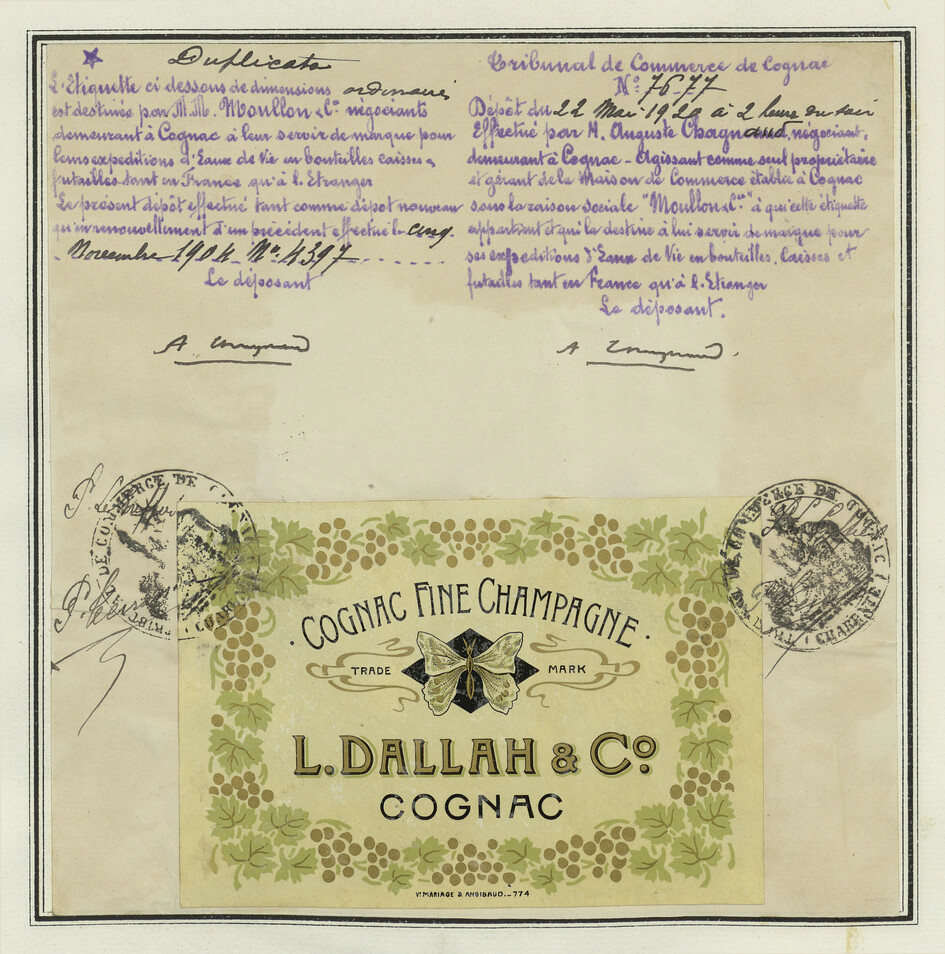 Duplicata
L'Etiquette ci dessous de dimensions ordinaires
est destinée par M.M. Moullon & Cie négociants
demeurant à Cognac à leur servir de marque pour
leurs expeditions d'Eaux de Vie en bouteilles caisses &
futailles tant en France qu'à l'Etranger
Le présent dépôt effectué tant comme dépot nouveau
qu'en renouvellement d'un précédent effectué le cinq
Novembre 1904 No. 4397
Le déposant
Tribunal de Commerce de Cognac
No 7677
Dépôt du 22 Mai 1920 à 2 heure du soir
Effectué par M. Auguste Chagnaud, négociant,
demeurant à Cognac - Agissant comme seul propriétaire
et gérant de la Maison de Commerce établie à Cognac
sous la raison sociale "Moullon & Cie" à qui cette étiquette
appartient et qui la destine à lui servir de marque pour
ses expeditions d'Eaux de Vie en bouteilles, Caisses et
futailles tant en France qu'à l'Etranger
Le déposant.
DE COMMERCE DE COGNAC
DE COMMERCE DE COGNAC (CHARENTE)
· COGNAC FINE CHAMPAGNE ·
TRADE MARK
L. DALLAH & Co
COGNAC
Vve MARIAGE & ANGIBAUD. _ 774